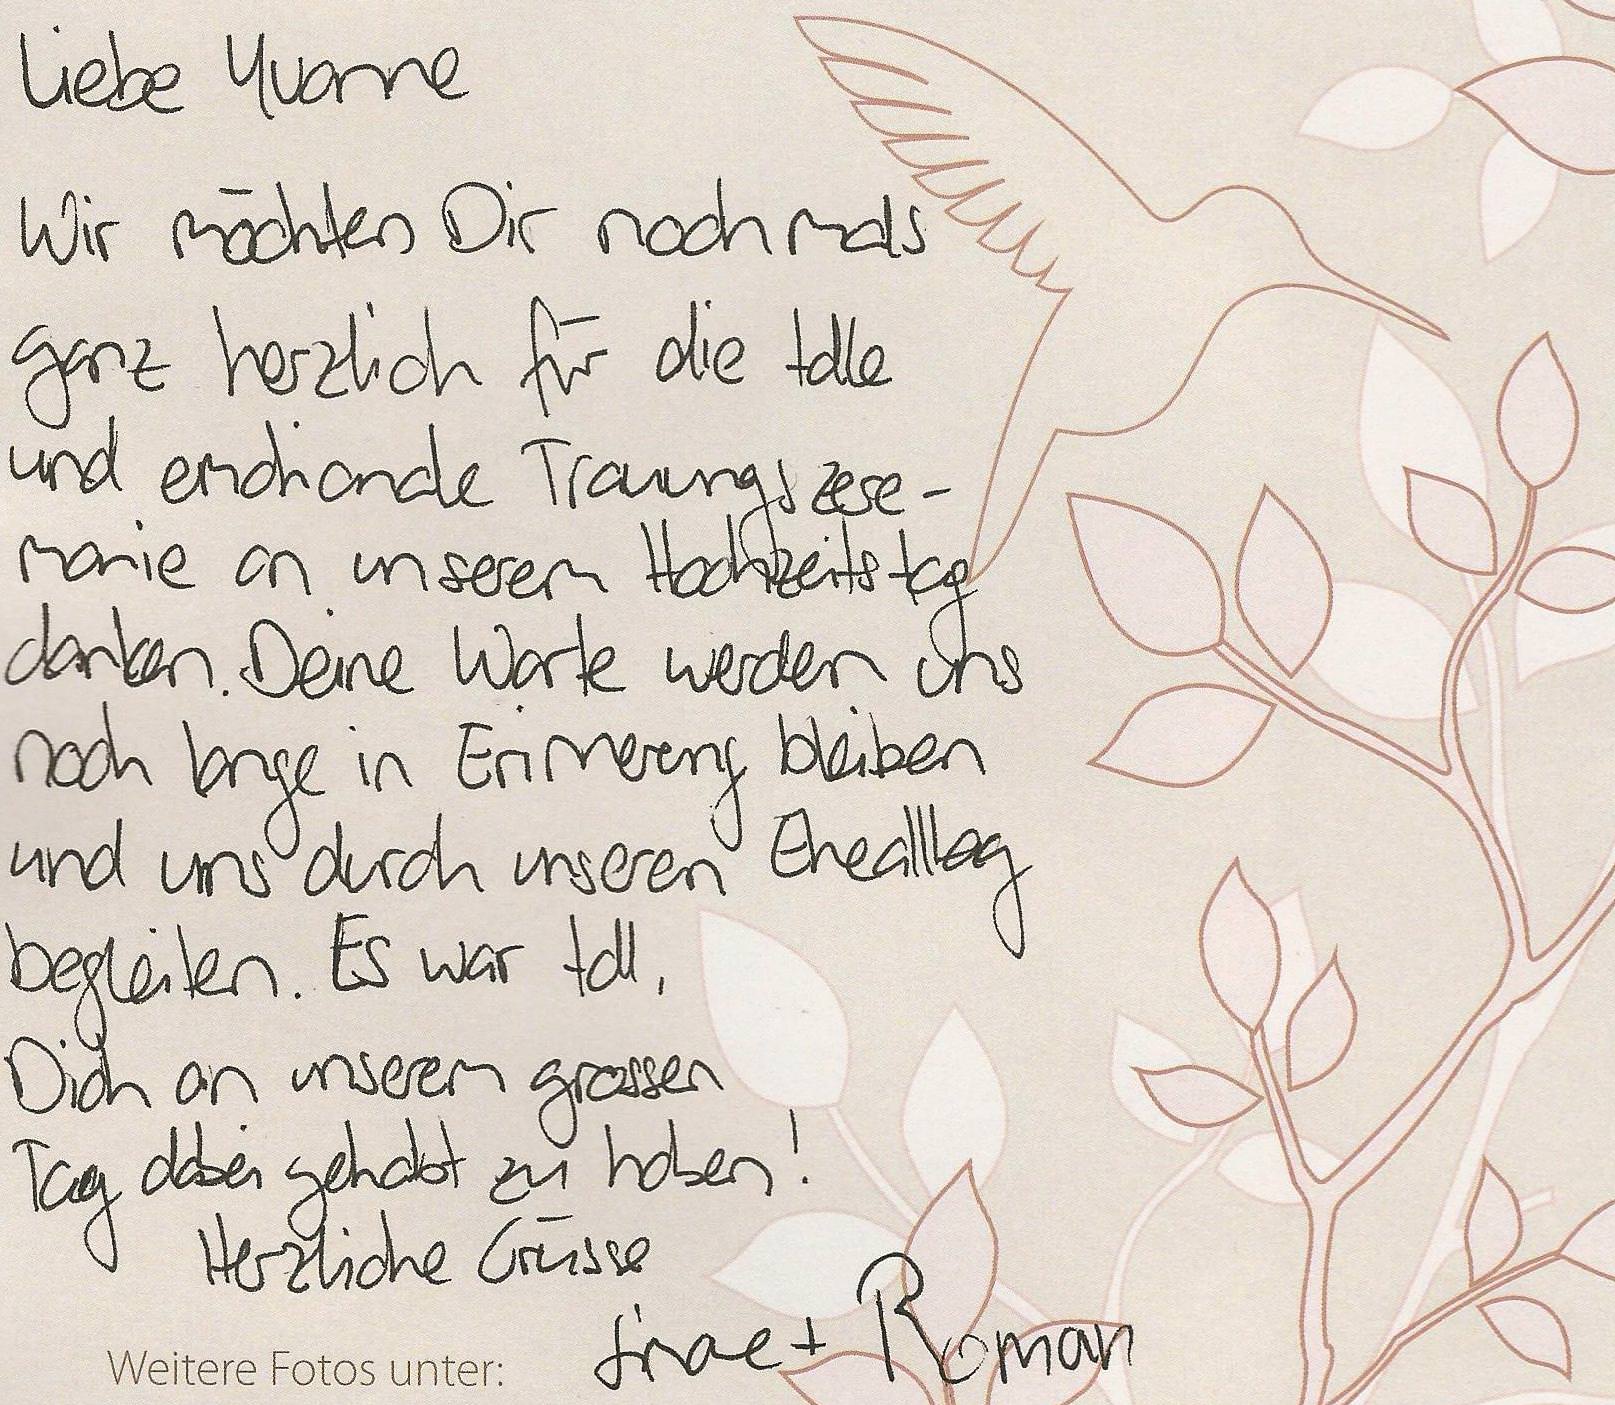 Liebe Yvonne
Wir möchten Dir nochmals
ganz herzlich für die tolle
und emotionale Trauungszere-
monie an unserem Hochzeitstag
danken. Deine Worte werden uns
noch lange in Erinnerung bleiben
und uns durch unseren Ehealltag
begleiten. Es war toll,
Dich an unserem grossen
Tag dabei gehabt zu haben!
Herzliche Grüsse
+ Roman
Weitere Fotos unter: